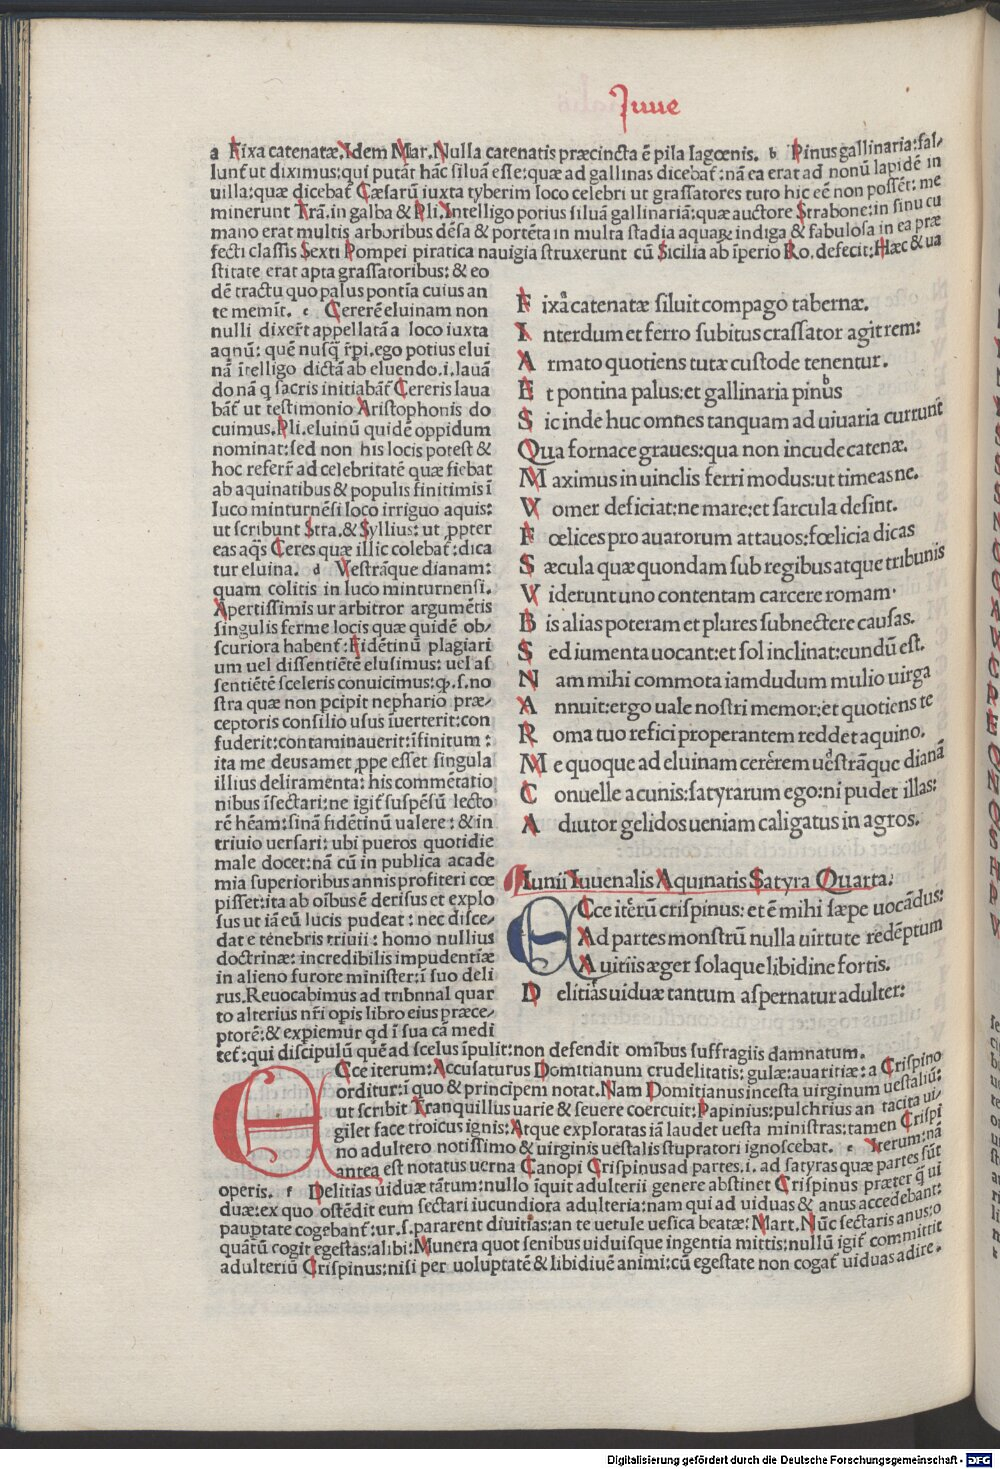 Juue
a Fixa catenatæ. Idem Mar. Nulla catenatis præcincta ē pila lagœnis. b Pinus gallinaria: fal-
lunt̃ ut diximus: qui putāt hāc siluā esse: quæ ad gallinas dicebat̃: nā ea erat ad nonū lapidē in
uilla: quæ dicebat̃ Cæsarū iuxta tyberim loco celebri ut grassatores tuto hic eē non possēt: me
minerunt Trā. in galba & Pli. Intelligo potius siluā gallinariā: quæ auctore Strabone: in sinu cu
mano erat multis arboribus dēsa & portēta in multa stadia aquaꝝ indiga & fabulosa in ea præ
fecti classis Sexti Pompei piratica nauigia struxerunt cū Sicilia ab īperio Ro. defecit: Hæc & ua
stitate erat apta grassatoribus: & eo
dē tractu quo palus pontia cuius an
te memīt. c Cererē eluinam non
nulli dixer̃t appellatā a loco iuxta
aqnū: quē nusq̄ r̃pi. ego potius elui
nā ītelligo dictā ab eluendo .i. lauā
do nā q sacris initiabāt̃ Cereris laua
bāt̃ ut testimonio Aristophonis do
cuimus. Pli. eluinū quidē oppidum
nominat: sed non his locis potest &
hoc referr̃ ad celebritatē quæ fiebat
ab aquinatibus & populis finitimis ī
luco minturnēsi loco irriguo aquis:
ut scribunt Stra. & Syllius: ut ꝓpter
eas aq̄s Ceres quæ illic colebat̃: dica
tur eluina. d Vestrāque dianam:
quam colitis in luco minturnensi.
Apertissimis ur arbitror argumētis
singulis ferme locis quæ quidē ob-
scuriora habent̃: Fidētinū plagiari
um uel dissentiētē elusimus: uel as
sentiētē sceleris conuicimus: ꝙ .s. no
stra quæ non pcipit nephario præ-
ceptoris consilio usus īuerterit: con
fuderit: contaminauerit: īfinitum:
ita me deus amet ꝓpe esset singula
illius deliramenta: his commētatio
nibus īsectari: ne igit̃ suspēsū lecto
rē hēam: sinā fidētinū ualere: & in
triuio uersari: ubi pueros quotidie
male docet: nā cū in publica acade
mia superioribus annis profiteri cœ
pisset: ita ab oībus ē derisus et explo
sus ut iā eū lucis pudeat: nec disce-
dat e tenebris triuii: homo nullius
doctrinæ: incredibilis impudentiæ
in alieno furore minister: ī suo deli
rus. Reuocabimus ad tribnnal quar
to alterius nr̃i opis libro eius præce-
ptorē: & expiemur qd ī sua cā medi
tet̃: qui discipulū quē ad scelus īpulit: non defendit omībus suffragiis damnatum.
F ixa catenatæ siluit compago tabernæ. a
I nterdum et ferro subitus crassator agit rem:
A rmato quotiens tutæ custode tenentur.
E t pontina palus: et gallinaria pinus b
S ic inde huc omnes tanquam ad uiuaria currunt
Qua fornace graues: qua non incude catenæ.
M aximus in uinclis ferri modus: ut timeas ne.
V omer deficiat: ne mare: et sarcula desint.
F œlices pro auarorum attauos: fœlicia dicas
S æcula quæ quondam sub regibus atque tribunis
V iderunt uno contentam carcere romam.
B is alias poteram et plures subnectere causas.
S ed iumenta uocant: et sol inclinat: eundū est.
N am mihi commota iamdudum mulio uirga
A nnuit: ergo uale nostri memor: et quotiens te
R oma tuo refici properantem reddet aquino.
M e quoque ad eluinam cererem c uestrāque d dianā
C onuelle a cunis: satyrarum ego: ni pudet illas:
A diutor gelidos ueniam caligatus in agros.
Iunii Iuuenalis Aquinatis Satyra Quarta.
ECce iterū crispinus: et ē mihi sæpe uocādus:
Ad partes monstrū nulla uirtute redēptum
A uitiis æger solaque libidine fortis.
D elitias uiduæ tantum aspernatur adulter:
ECce iterum: Accusaturus Domitianum crudelitatis: gulæ: auaritiæ: a Crispino
orditur: ī quo & principem notat. Nam Domitianus incesta uirginum uestaliū:
ut scribit Tranquillius uarie & seuere coercuit: Papinius: pulchrius an tacita ui-
gilet face troicus ignis: Atque exploratas iā laudet uesta ministras: tamen Crispi
no adultero notissimo & uirginis uestalis stupratori ignoscebat. e Iterum: nā
antea est notatus uerna Canopi Crispinus ad partes .i. ad satyras quæ partes sūt
operis. f Delitias uiduæ tātum: nullo īquit adulterii genere abstinet Crispinus præter q̄ ui
duæ: ex quo ostēdit eum sectari iucundiora adulteria: nam qui ad uiduas & anus accedebant:
pauptate cogebant̃: ur .s. pararent diuitias: an te uetule uesica beatæ: Mart. Nūc sectaris anus: o
quātū cogit egestas: alibi: Munera quot senibus uiduisque ingentia mittis: nullū igit̃ committit
adulteriū Crispinus: nisi per uoluptatē & libidiuē animi: cū egestate non cogat̃ uiduas adire.
Digitalisierung gefördert durch die Deutsche Forschungsgemeinschaft - DFG